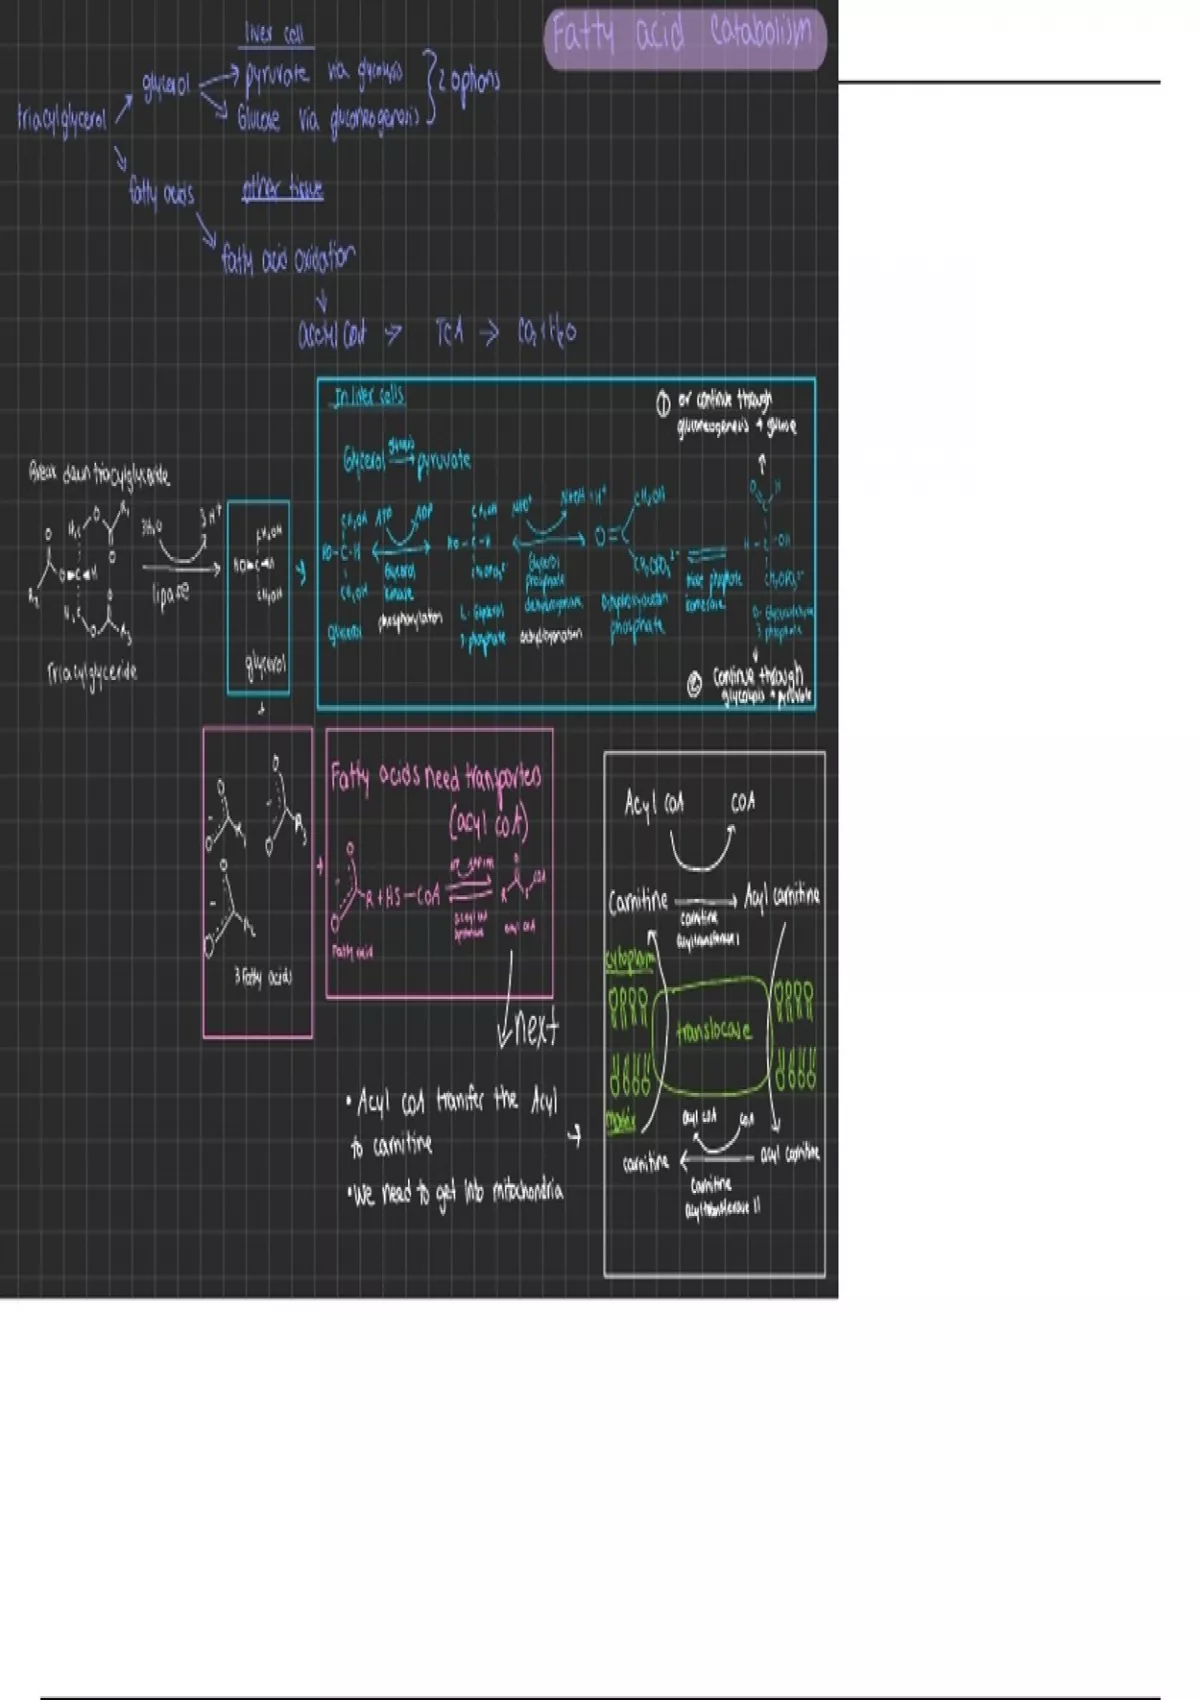 Fatty acid catabolism
liver cell
glycerol
pyruvate via glycolysis
Glucose via gluconeogenesis
2 options
triacylglycerol
fatty acids
other tissue
fatty acid oxidation
TCA
In liver cells
① or continue through
gluconeogenesis → glucose
Glycerol
pyruvate
Break down triacylglyceride
3H₂O
3 H⁺
lipase
Triacylglyceride
CH₂OH
CH₂OH
glycerol
CH₂OH
HO-C-H
CH₂OH
glycerol
ATP
ADP
Glycerol
kinase
phosphorylation
CH₂OH
L-Glycerol
3 phosphate
NAD⁺
NADH + H⁺
Glycerol
phosphate
dehydrogenase
CH₂OH
phosphate
isomerase
3 phosphate
② continue through
glycolysis → pyruvate
+
3 Fatty acids
Fatty acids need transporters
(acyl CoA)
R + HS-CoA
Fatty acid
acyl CoA
next
• Acyl CoA transfer the Acyl
to carnitine
• We need to get into mitochondria
Acyl CoA
CoA
Carnitine
Acyl carnitine
carnitine
acyltransferase I
cytoplasm
translocase
matrix
acyl CoA
CoA
carnitine
acyl carnitine
Carnitine
acyltransferase II